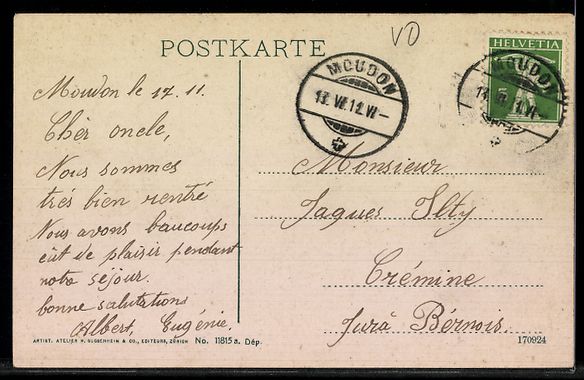 VD
POSTKARTE
HELVETIA
5
MOUDON
MOUDON
Moudon le 17. 11.
Chèr oncle,
Nous sommes
très bien rentré
Nous avons beaucoups
eût de plaisir pendant
notre séjour.
bonne salutations
Albert, Eugénie.
Monsieur
Jaques Ilty
Crémine
Jura Bérnois.
ARTIST. ATELIER H. GUGGENHEIM & CO., EDITEURS, ZÜRICH No. 11815 a. Dép.
170924